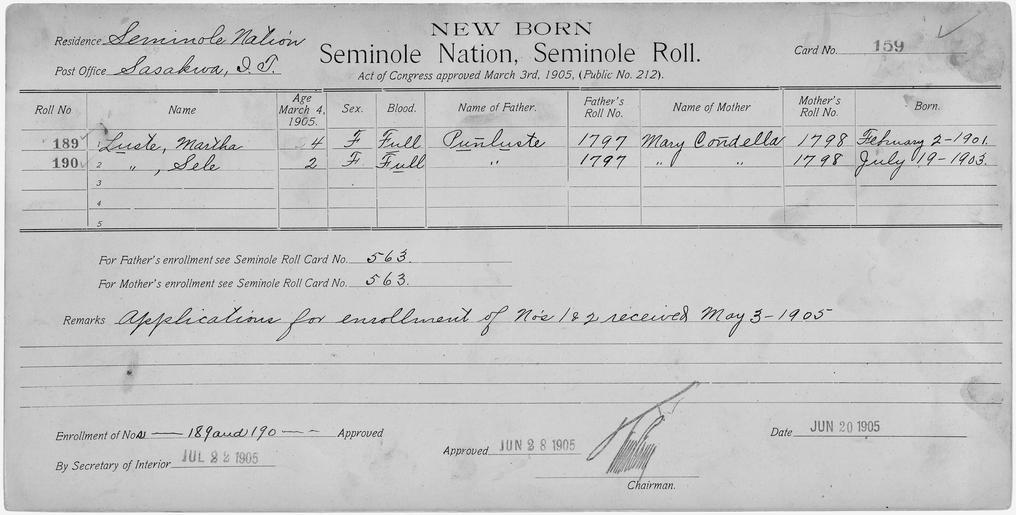 NEW BORN
Residence Seminole Nation
Seminole Nation, Seminole Roll.
Card No. 159
Post Office Sasakwa, I.T.
Act of Congress approved March 3rd, 1905, (Public No. 212).
Roll No Name Age March 4, 1905. Sex. Blood. Name of Father. Father's Roll No. Name of Mother Mother's Roll No. Born.
189 1 Luste, Martha 4 F Full Punluste 1797 Mary Condella 1798 February 2-1901.
190 2 " , Sele 2 F Full " 1797 " " 1798 July 19-1903.
3
4
5
For Father's enrollment see Seminole Roll Card No. 563.
For Mother's enrollment see Seminole Roll Card No. 563.
Remarks Applications for enrollment of Nos 1 & 2 received May 3-1905
Enrollment of Nos — 189 and 190 — Approved
By Secretary of Interior JUL 22 1905
Approved JUN 28 1905
Chairman.
Date JUN 20 1905